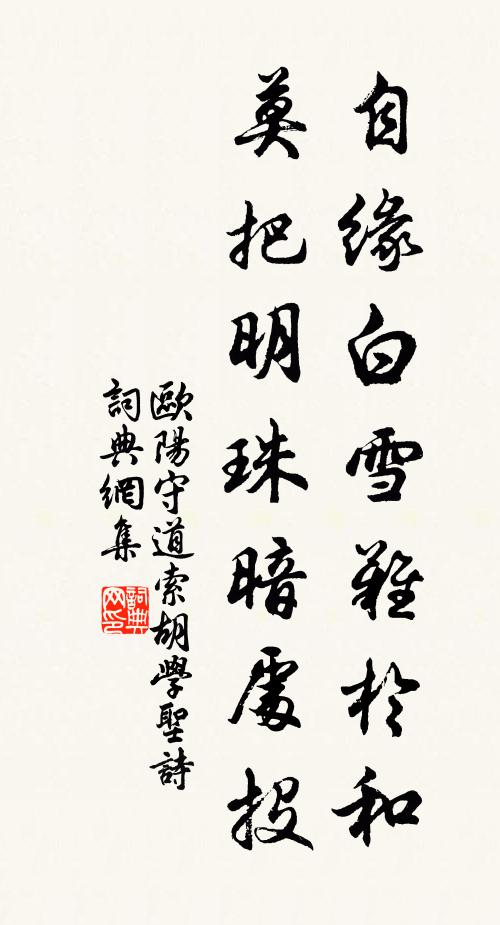 自緣白雪難於和
莫把明珠暗處投
歐陽守道索胡學聖詩
詞典網集
詞典
网印